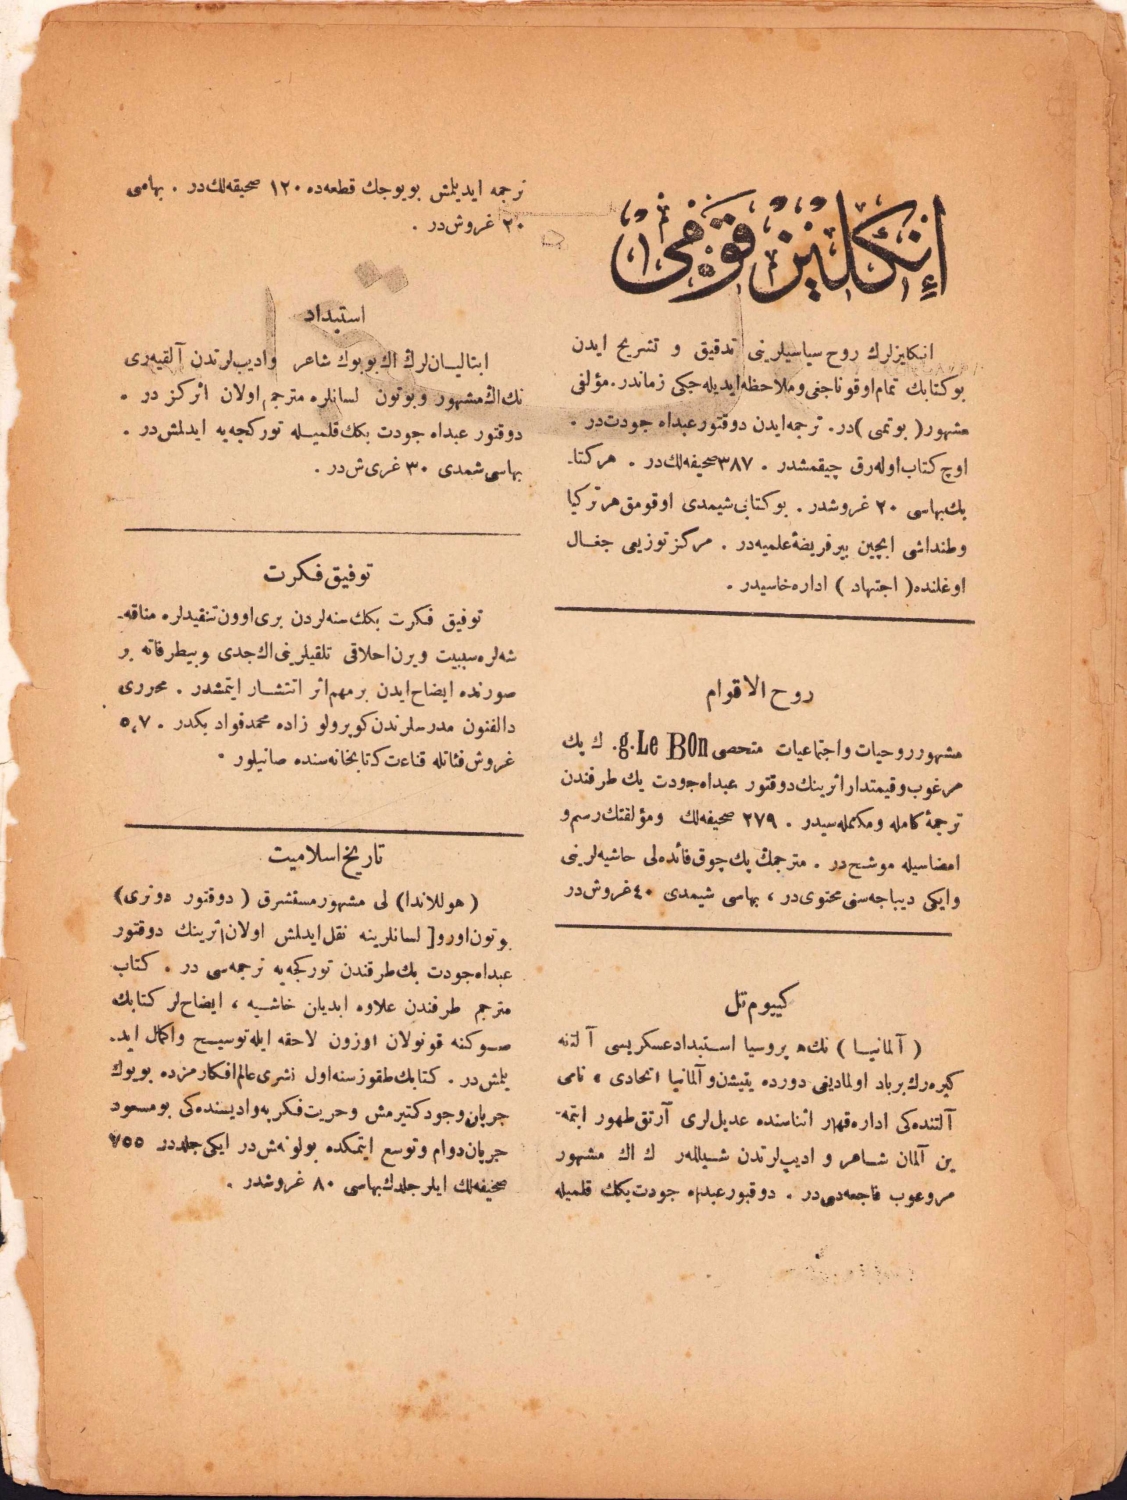 انكليز قومى
انكليزلرك روح سياسيلرينى تدقيق و تشريح ايدن
بو كتابك تمام اوقوناجنى و ملاحظه ايديله جكى زماندر. مؤلفى
مشهور ( بوتمى ) در. ترجمه ايدن دوقتور عبداه جودت در .
اوچ كتاب اوله رق چيقمشدر . ٣٨٧ صحيفه لك در . هر كتا-
بك بهاسى ٢٠ غروشدر . بو كتابى شيمدى اوقومق هر تركيا
وطنداشى ايچين بير فريضۀ علميه در . مركز توزيعى جغال
اوغلنده ( اجتهاد ) اداره خاسيدر .
روح الاقوام
مشهور روحيات و اجتماعيات متحصى g. Le Bon. ك پك
مرغوب و قيمتدار اثرينك دوقتور عبداه جودت بك طرفندن
ترجمۀ كامله و مكمله سيدر . ٢٧٩ صحيفه لك و مؤلفتك رسم و
امضاسيله موشح در . مترجمك پك چوق فائده لى حاشيه لرينى
وايكى ديباجه سنى محتوى در ، بهاسى شيمدى ٤٠ غروش در
كييوم تل
( آلمانيا ) نك ه پروسيا استبداد عسكريسى آلتنه
كيره رك برباد اولمادينى دورده يتيشن و آلمانيا اتحادى ، نامى
آلتنده كى اداره قهار اثناسنده عديل لرى آرتق ظهور ايتمه-
ين آلمان شاهر و اديب لرتدن شيلله ر ك اك مشهور
مروعوب فاجعه سى در . دوقبور عبداه جودت بكك قلميله
ترجمه ايديلمش بويوجك قطعه ده ١٢٠ صحيقه لك در . بهامى
٢٠ غروش در .
استبداد
ايتاليانلرك اك بويوك شاعر و اديب لرتدن آلفيه رى
نك اك مشهور و بوتون لسانلره مترجم اولان اثركز در .
دوقتور عبداه جودت بكك قلميله توركجه يه ايدلمش در .
بهاسى شمدى ٣٠ غرى ش در .
توفيق فكرت
توفيق فكرت بكك سنه لردن برى اوون تنقيدلره مناقه-
شه لره سببيت ويرن اخلاقى تلقيلرينى اك جدى و بيطرفانه بر
صورتده ايضاح ايدن بر مهم اثر انتشار ايتمشدر . محررى
دالفنون مدرسلرتدن كوبرولو زاده محمد فواد بكدر . ٥،٧
غروش فئاتله قناءت كتابخانه سنده صاتيلور .
تاريخ اسلاميت
( هوللاندا ) لى مشهور مستشرق ( دوقتور دوزى )
بوتون اورو[ لسانلرينه نقل ايدلش اولان اثرينك دوقتور
عبداه جودت بك طرفندن توركجه يه ترجمه سى در . كتاب
مترجم طرفندن علاوه ايديلن خاشيه ، ايضاح لر كتابك
صوكنه قونولان اوزون لاحقه ايله توسيح و اكمال ايد-
يلمش در . كتابك طقوز سنه اول نشرى عالم افكارمزده بويوك
جريان وجود كتيرمش و حريت فكريه وادیسنده كى بو مسعود
جريان دوام و توسع ايتمكده بولونمش در ايكى جلددر ٧٥٥
صحيفه لك ايلر جلدك بهاسى ٨٠ غروشدر .